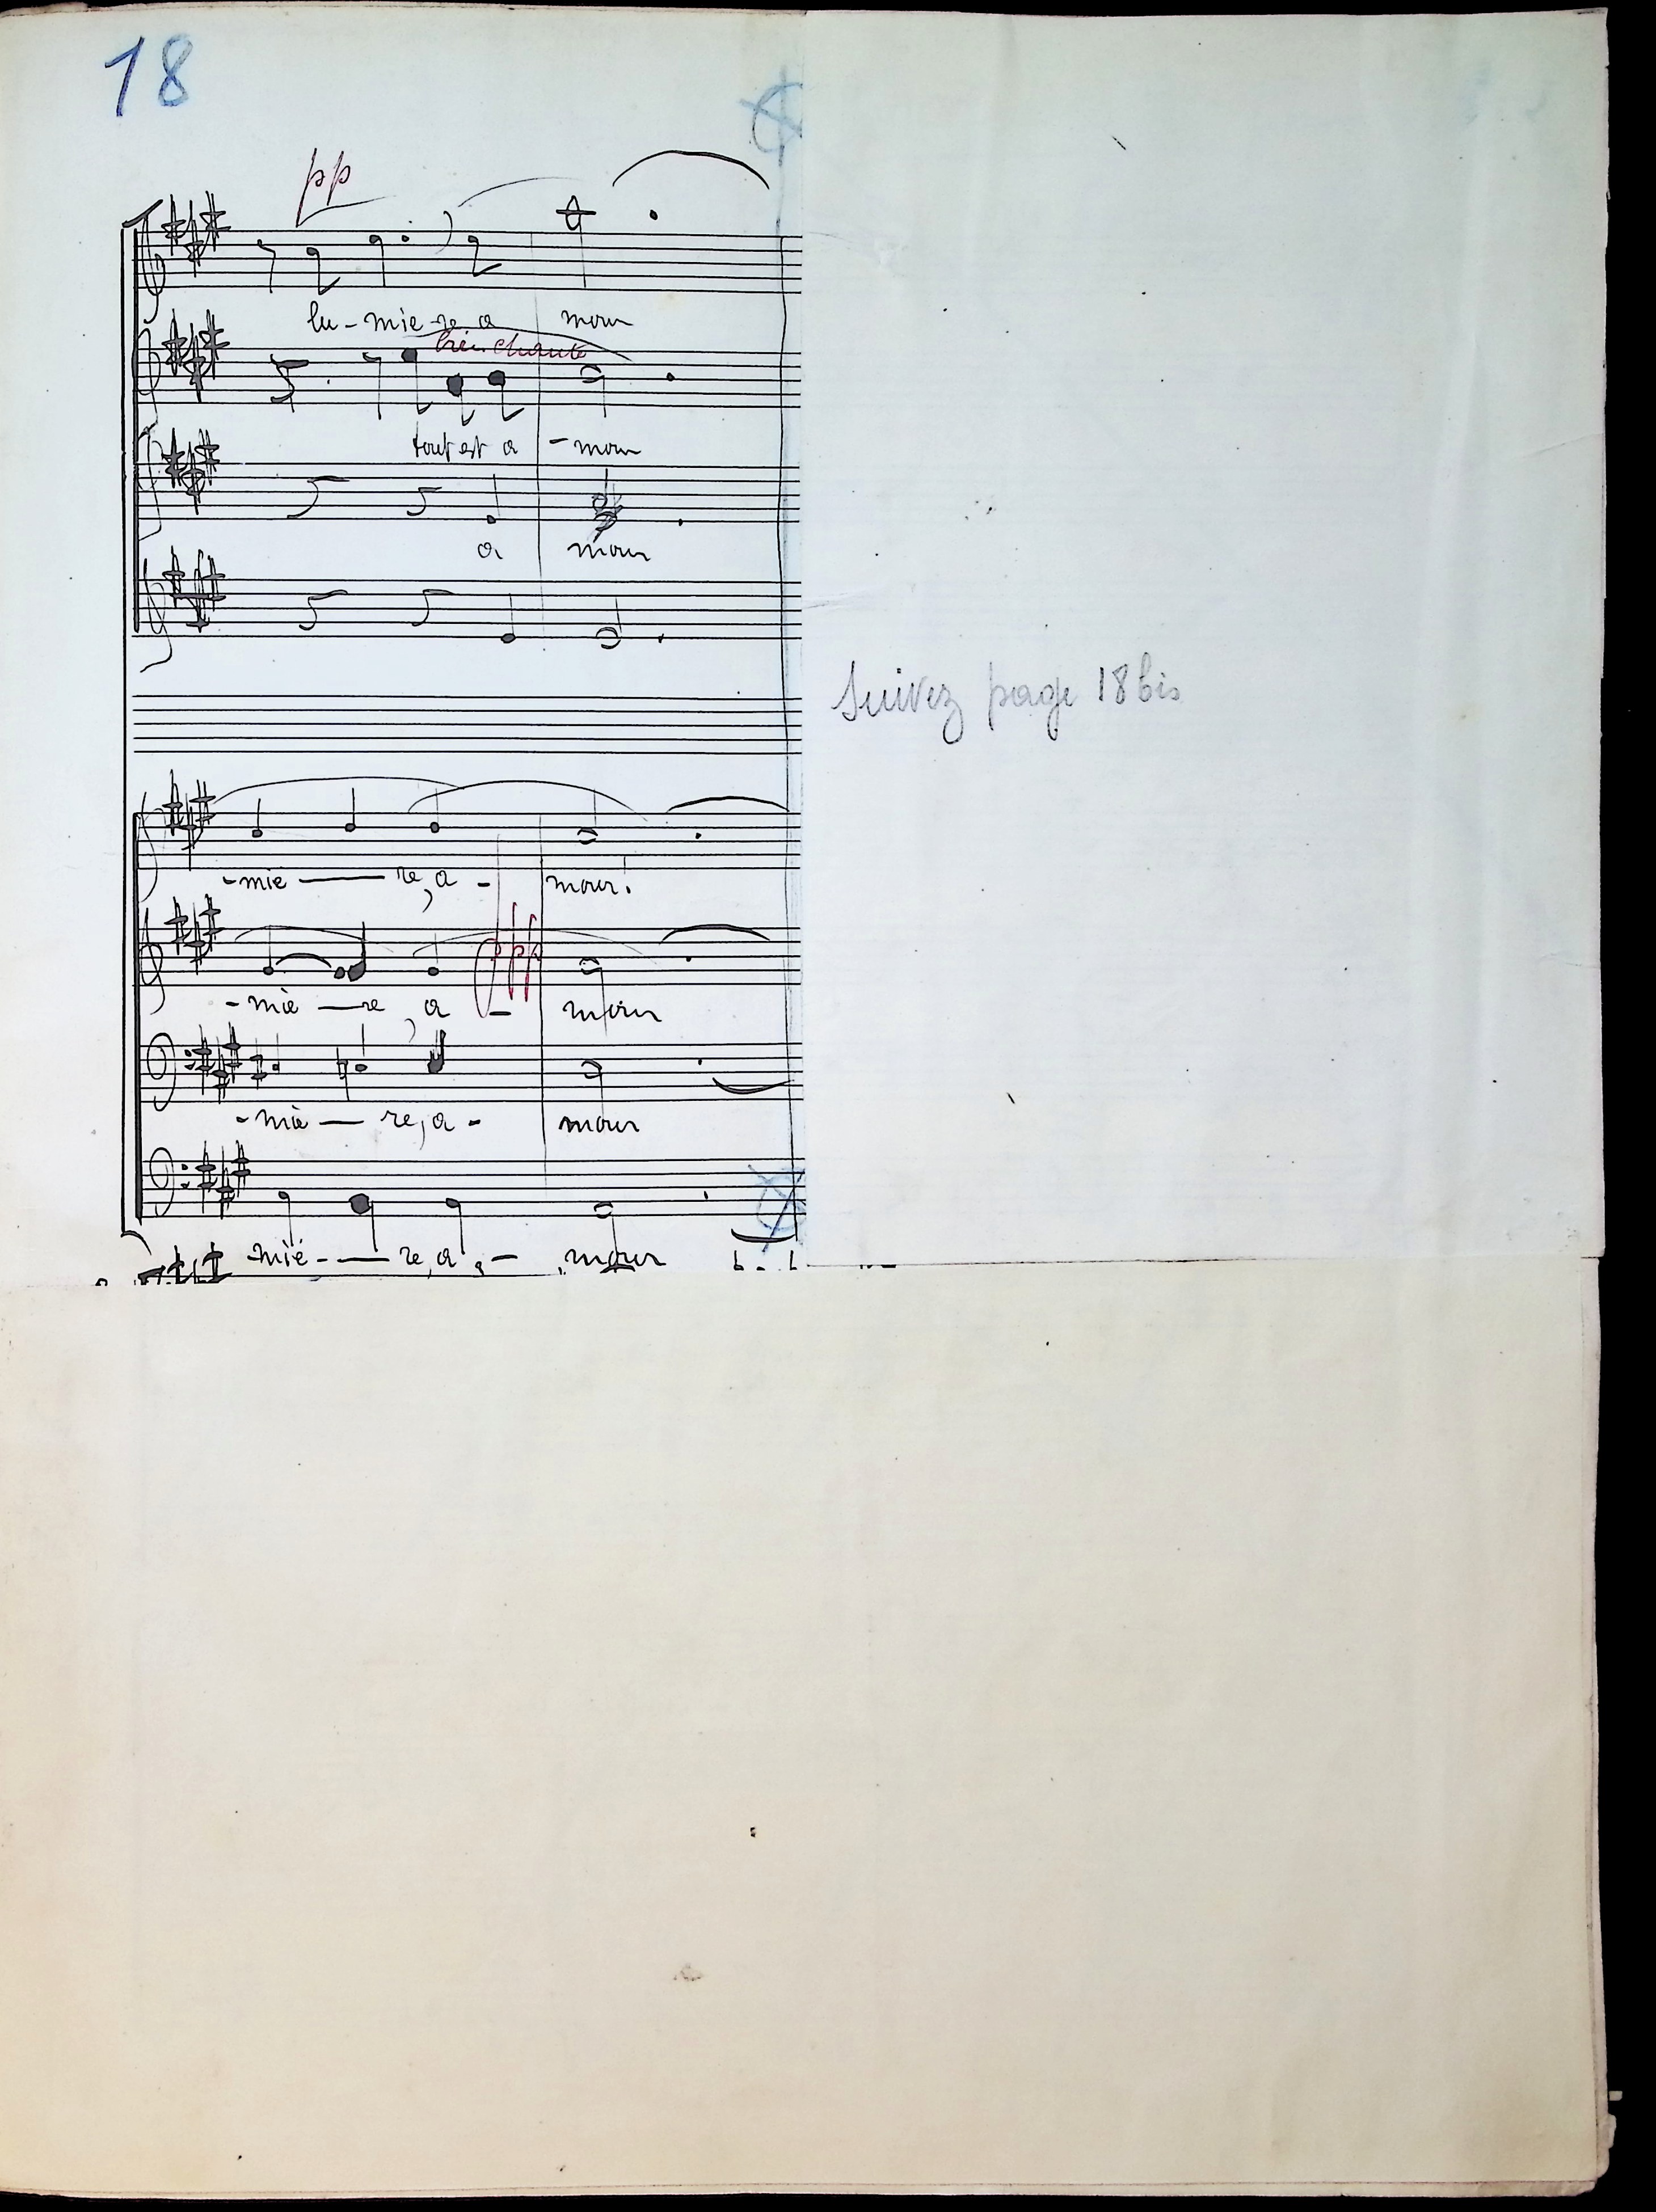 18
pp
lu - mie - re a mour
bien chanté
tout est a - mour
a mour
Suivez page 18 bis
- mie — re, a - mour!
ppp
- mie — re, a - mour
- mie — re, a - mour
- mié - — re, a - mour